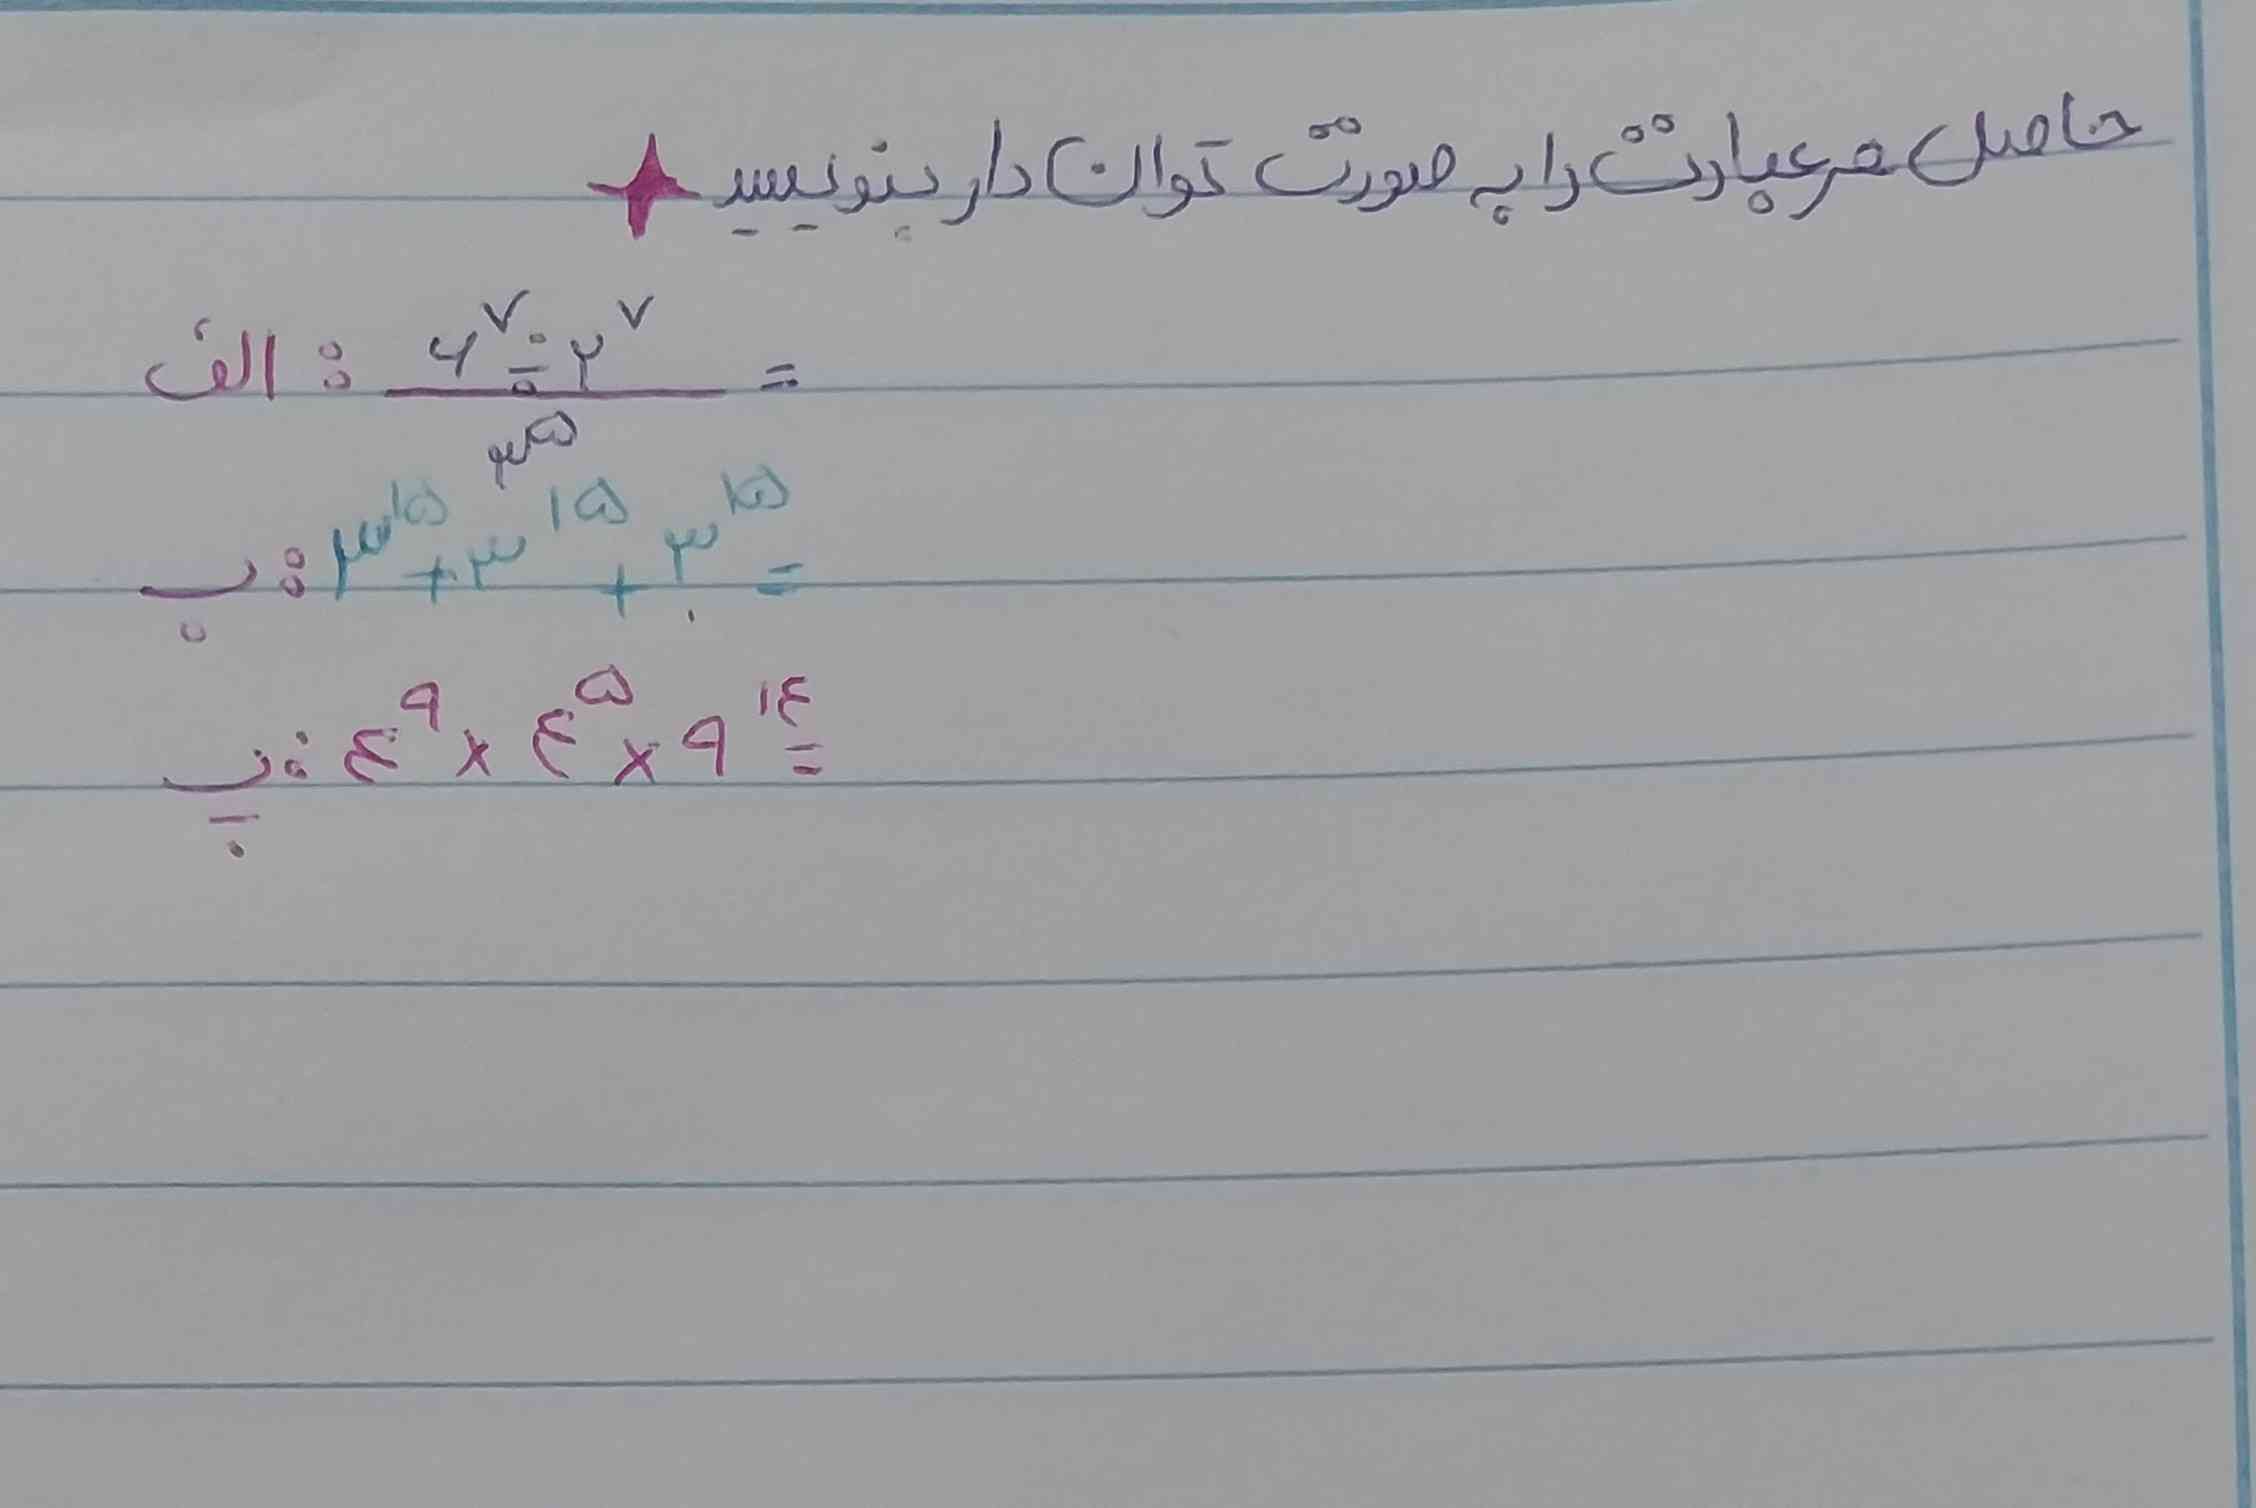 حاصل هر عبارت را به صورت توان دار بنویسید
الف : ۶^۷ ÷ ۲^۷ / ۳^۵ =
ب : ۳^۱۵ + ۳^۱۵ + ۳^۱۵ =
پ : ۴^۹ × ۴^۵ × ۹^۱۴ =